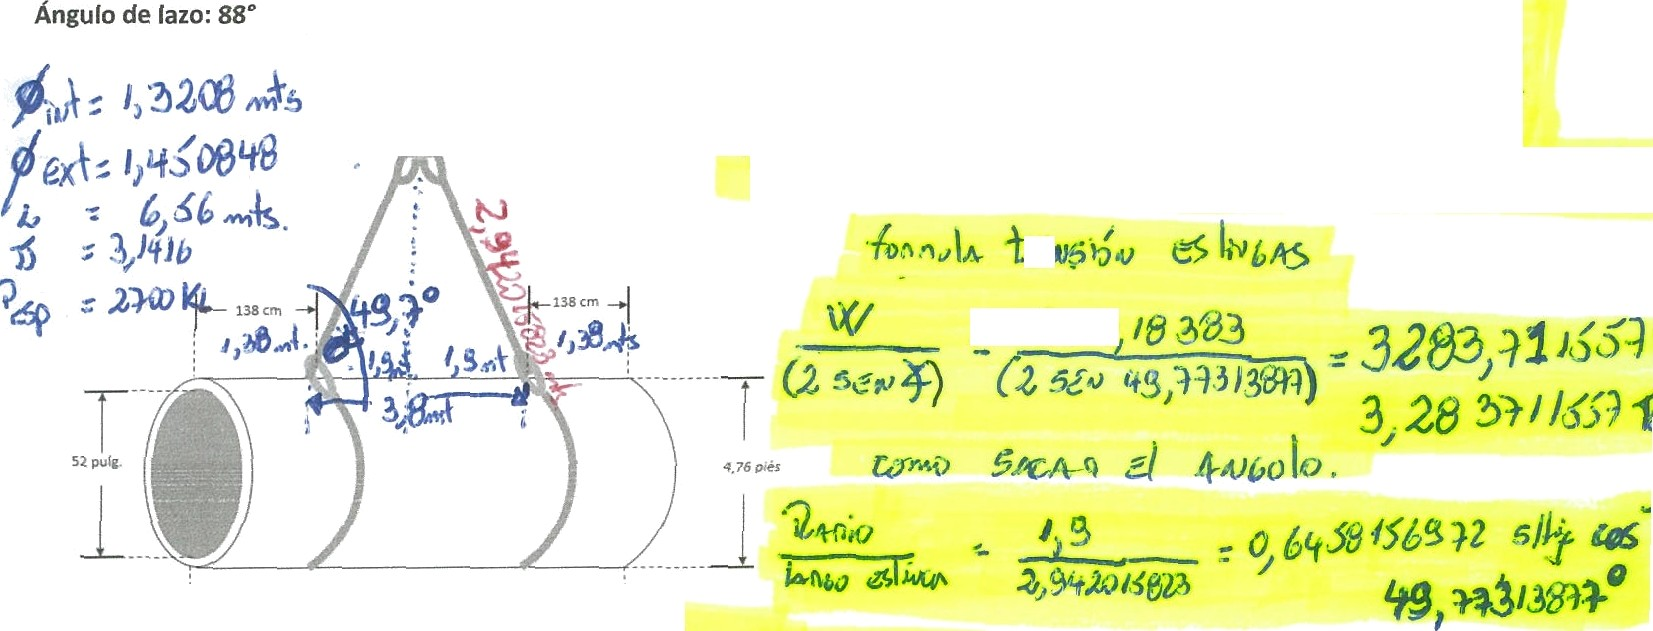 Ángulo de lazo: 88°
Øint = 1,3208 mts
Øext = 1,450848
L = 6,56 mts.
= 3,1416
Pesp = 2700 KL
138 cm
1,38 mt.
49,7°
2,942015823 mts
138 cm
1,38 mts
1,9 mt
1,9 mt
3,8 mt
52 pulg.
4,76 piés
formula t nsión EslingAs
W
(2 SEN ∡)
-
,18383
(2 SEN 49,77313877)
= 3283,711557
3,283711557 T
como SACAR El ANGOlo.
RADIO
lARGO Eslinga
=
1,9
2,942015823
= 0,6458156972 shif cos⁻
49,77313877°